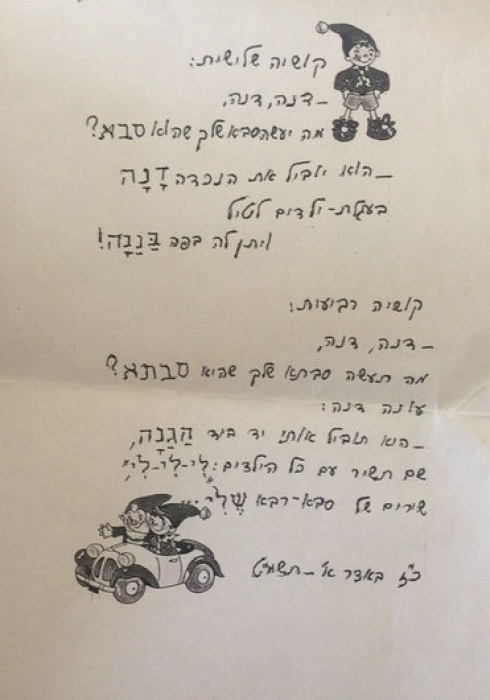 קושיה שלישית:
–דנה, דנה,
מה יעשה סבא שלך שהוא סבא?
–הוא יוביל את הנכדה דָנָה
בעגלת-ילדים לטיול
ויתן לה בפה בַּנַנָה!
קושיה רביעית:
–דנה, דנה,
מה תעשה סבתא שלך שהיא סבתא?
עונה דנה:
–היא תוביל אותי יד ביד הַגַנָה,
שם תשיר עם כל הילדים: לִי-לִי-לִי,
שירים של סבא-רבא שֶלִי...
כ"ז באדר א' –תשמ"ט